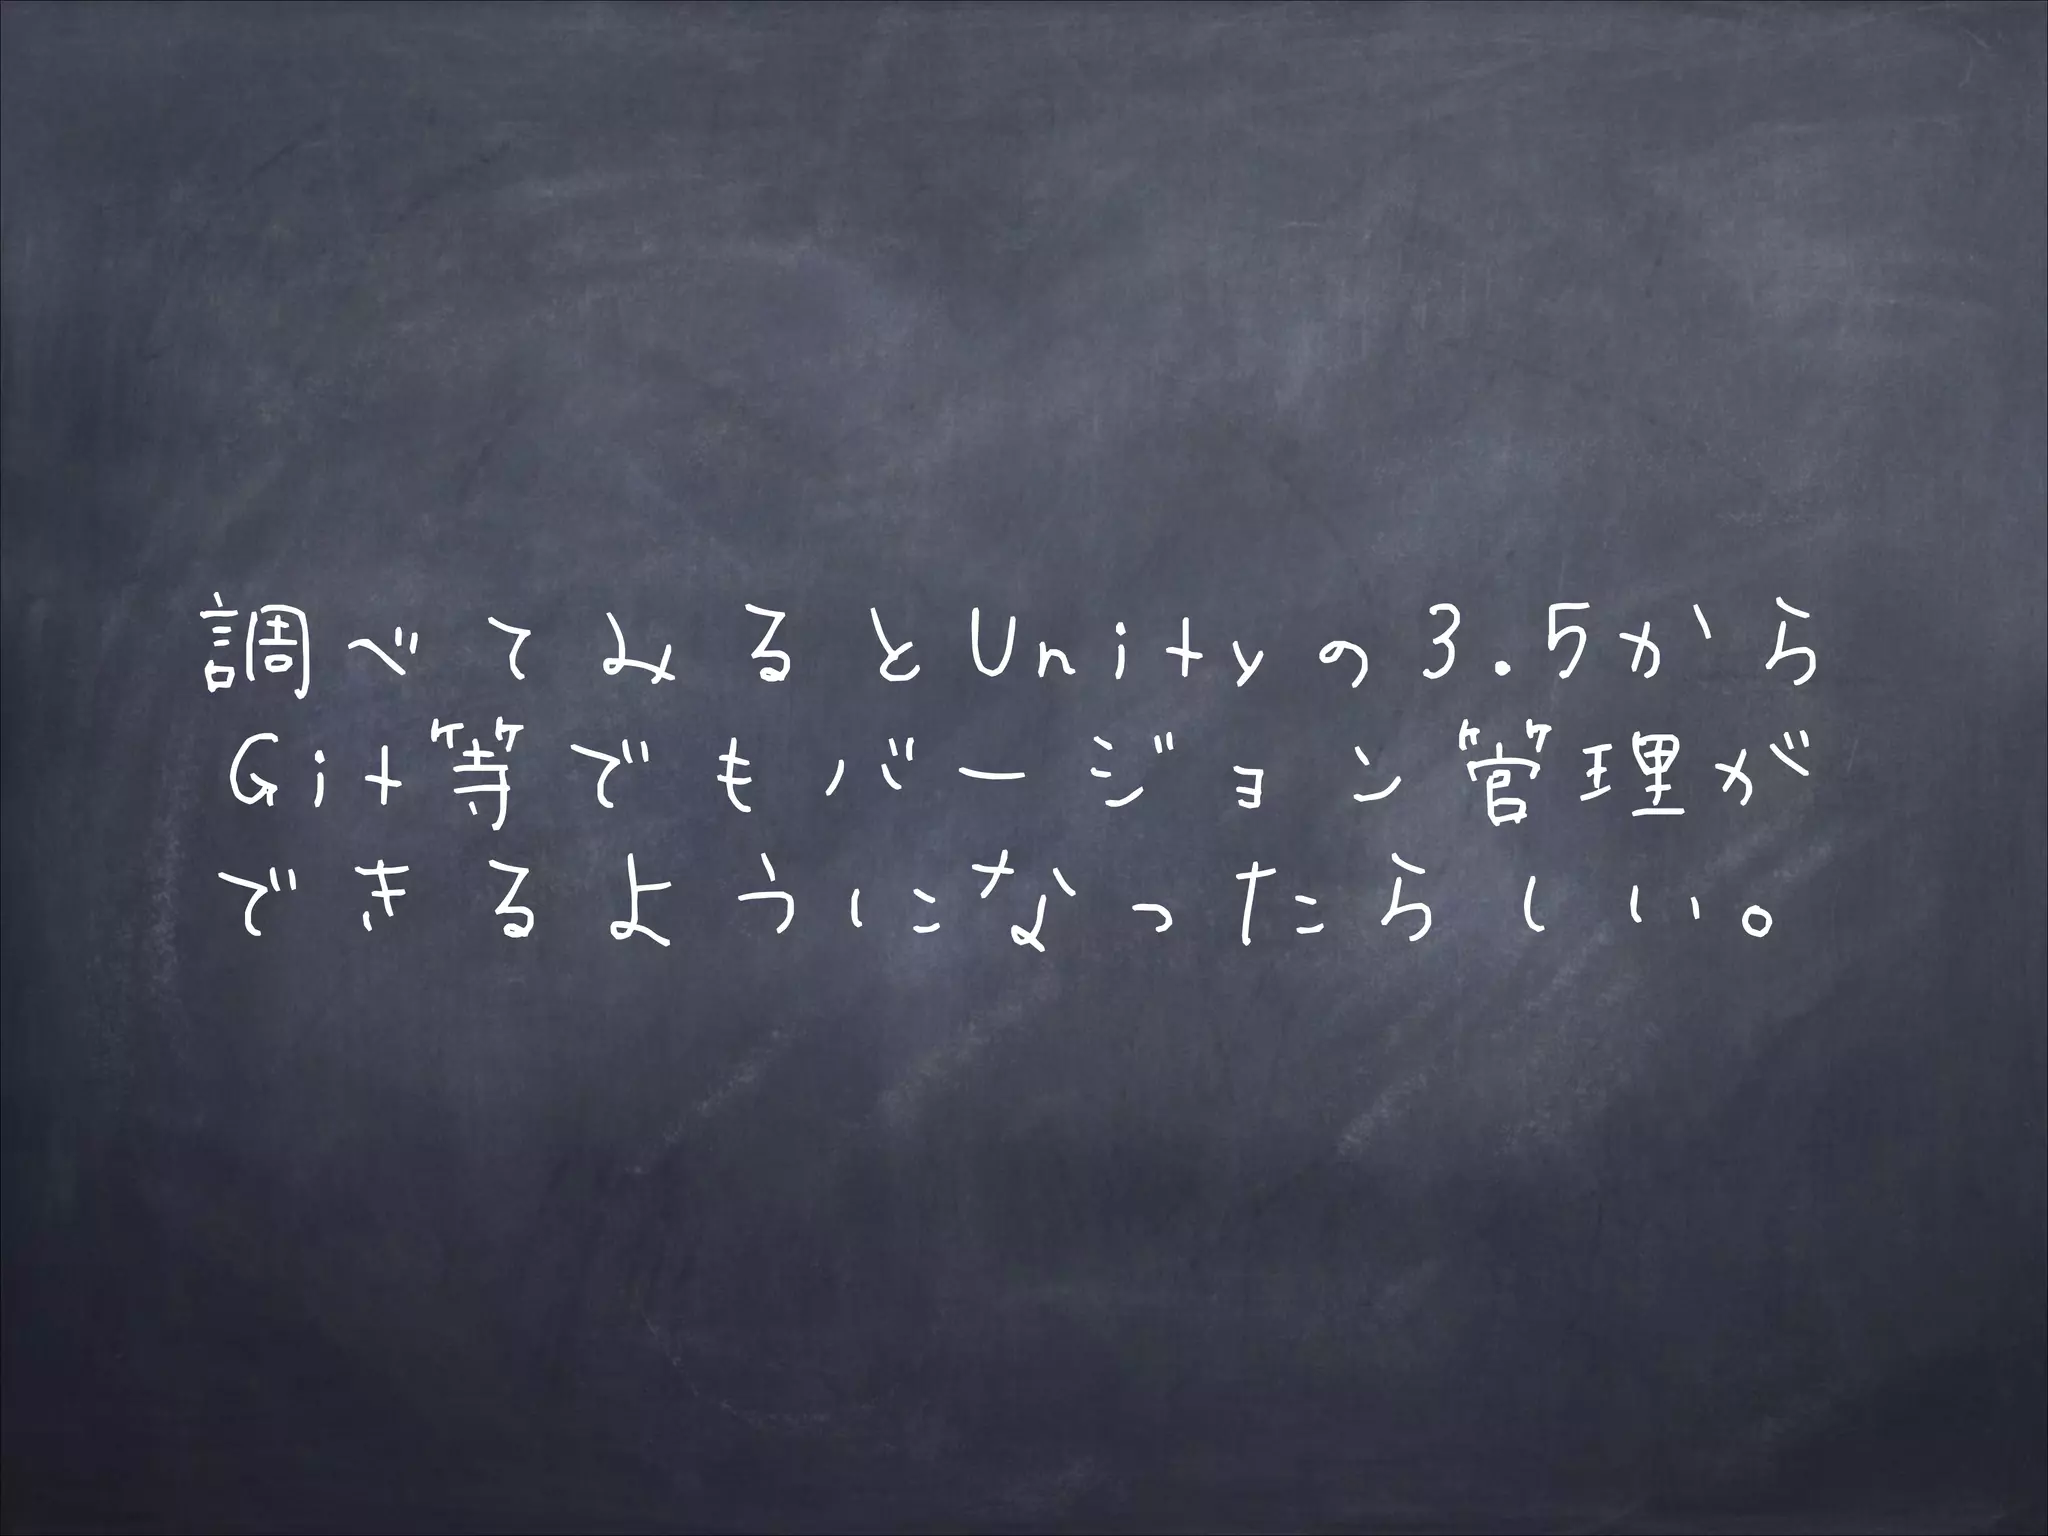 調べてみるとUnityの3.5から
Git等でもバージョン管理が
できるようになったらしい。